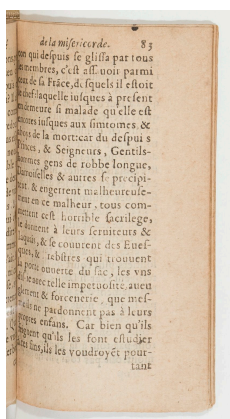 de la misericorde. 83
on qui despuis se glissa par tous
membres, c'est assauoir parmi
de sa Frãce, desquels il estoit
chef: laquelle iusques à present
demeure si malade qu'elle est
encores iusques aux simtomes &
de la mort: car du despuis
Princes, & Seigneurs, Gentils-
hommes gens de robbe longue,
Damoiselles & autres se precipi-
& engerrent malheureuse-
ment en ce malheur, tous com-
mettent cest horrible sacrilege,
donnent à leurs seruiteurs &
laquais, & se couurent des Eues-
ques, & prebstres qui trouuent
la porte ouuerte du sac, les vns
auec telle impetuosité, aueu
glement & forcenerie, que mes-
ne pardonnent pas à leurs
propres enfans. Car bien qu'ils
qu'ils les font estudier
ils les voudroyẽt pour-
tant